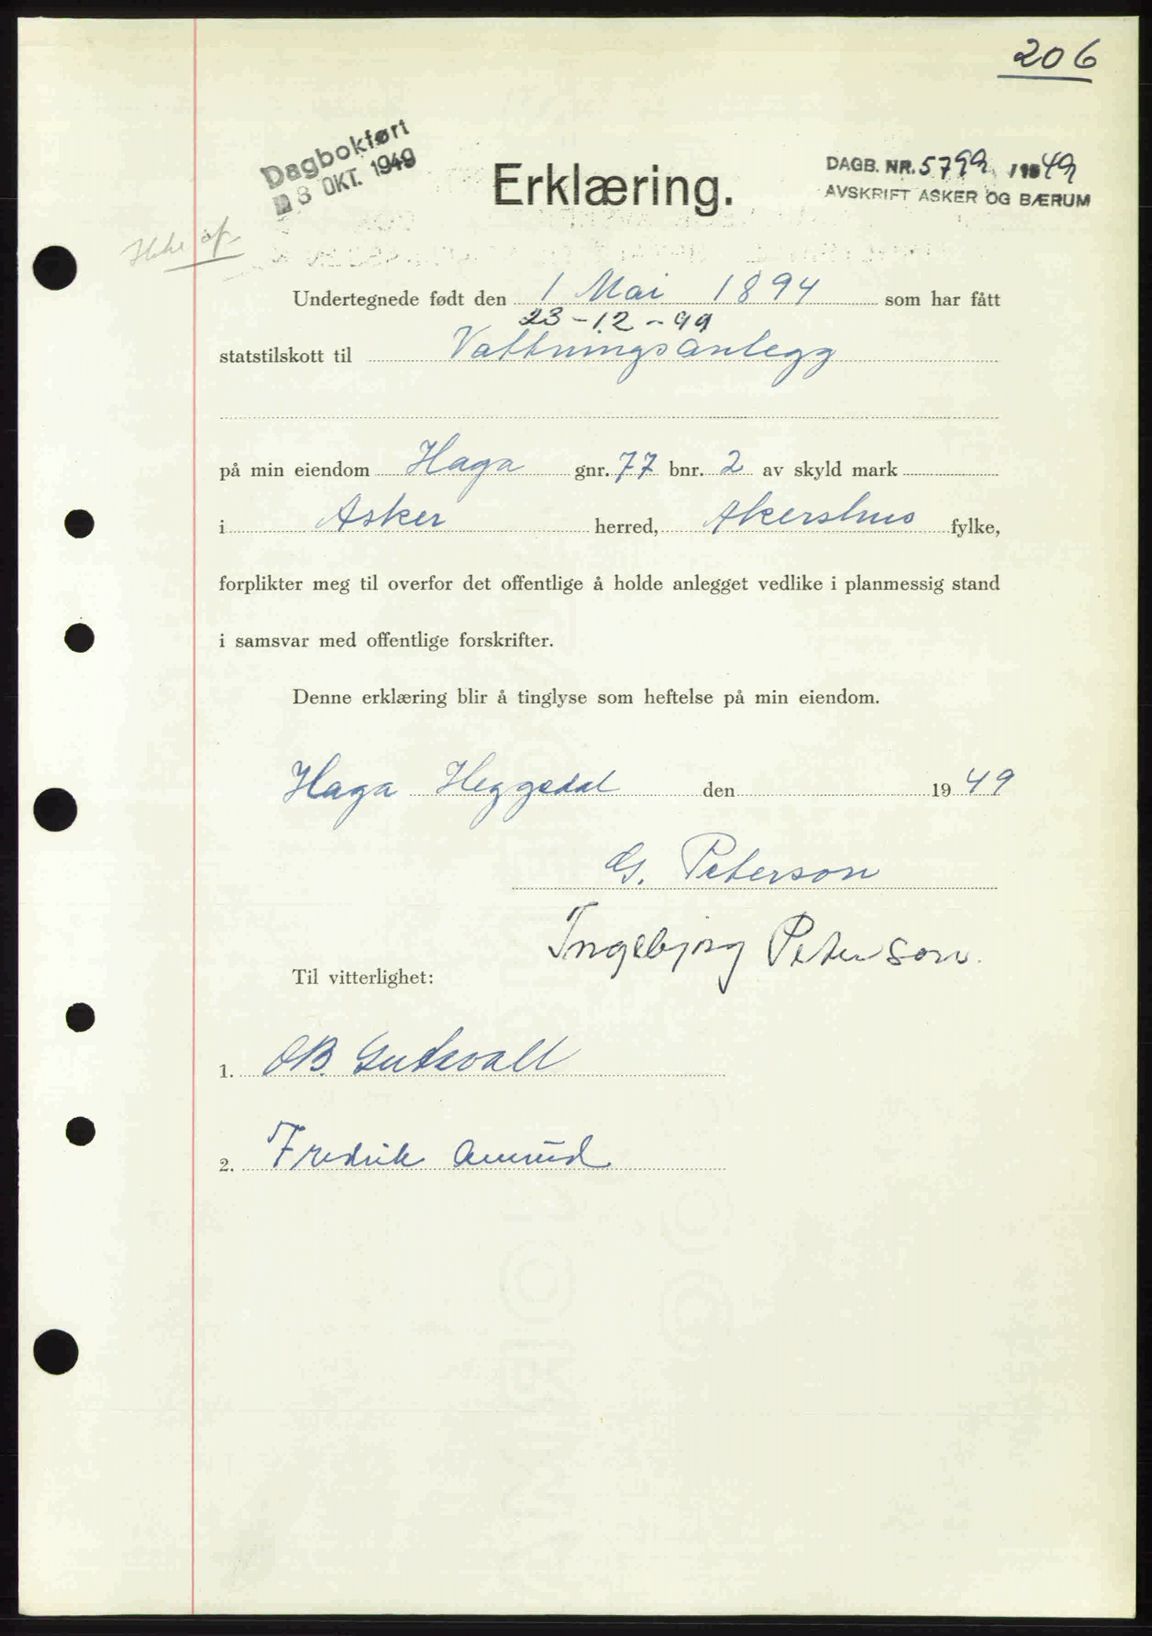 206
Dagbokført
3 OKT. 1949
Erklæring.
DAGB. NR. 5799 / 1949
AVSKRIFT ASKER OG BÆRUM
Undertegnede født den 1 Mai 1894 som har fått
23-12-99
statstilskott til Vattningsanlegg
på min eiendom Haga gnr. 77 bnr. 2 av skyld mark
i Asker herred, Akershus fylke,
forplikter meg til overfor det offentlige å holde anlegget vedlike i planmessig stand
i samsvar med offentlige forskrifter.
Denne erklæring blir å tinglyse som heftelse på min eiendom.
Haga Heggedal den 1949
G. Peterson
Ingebjørg Peterson.
Til vitterlighet:
1. OB.
2. Fredrik